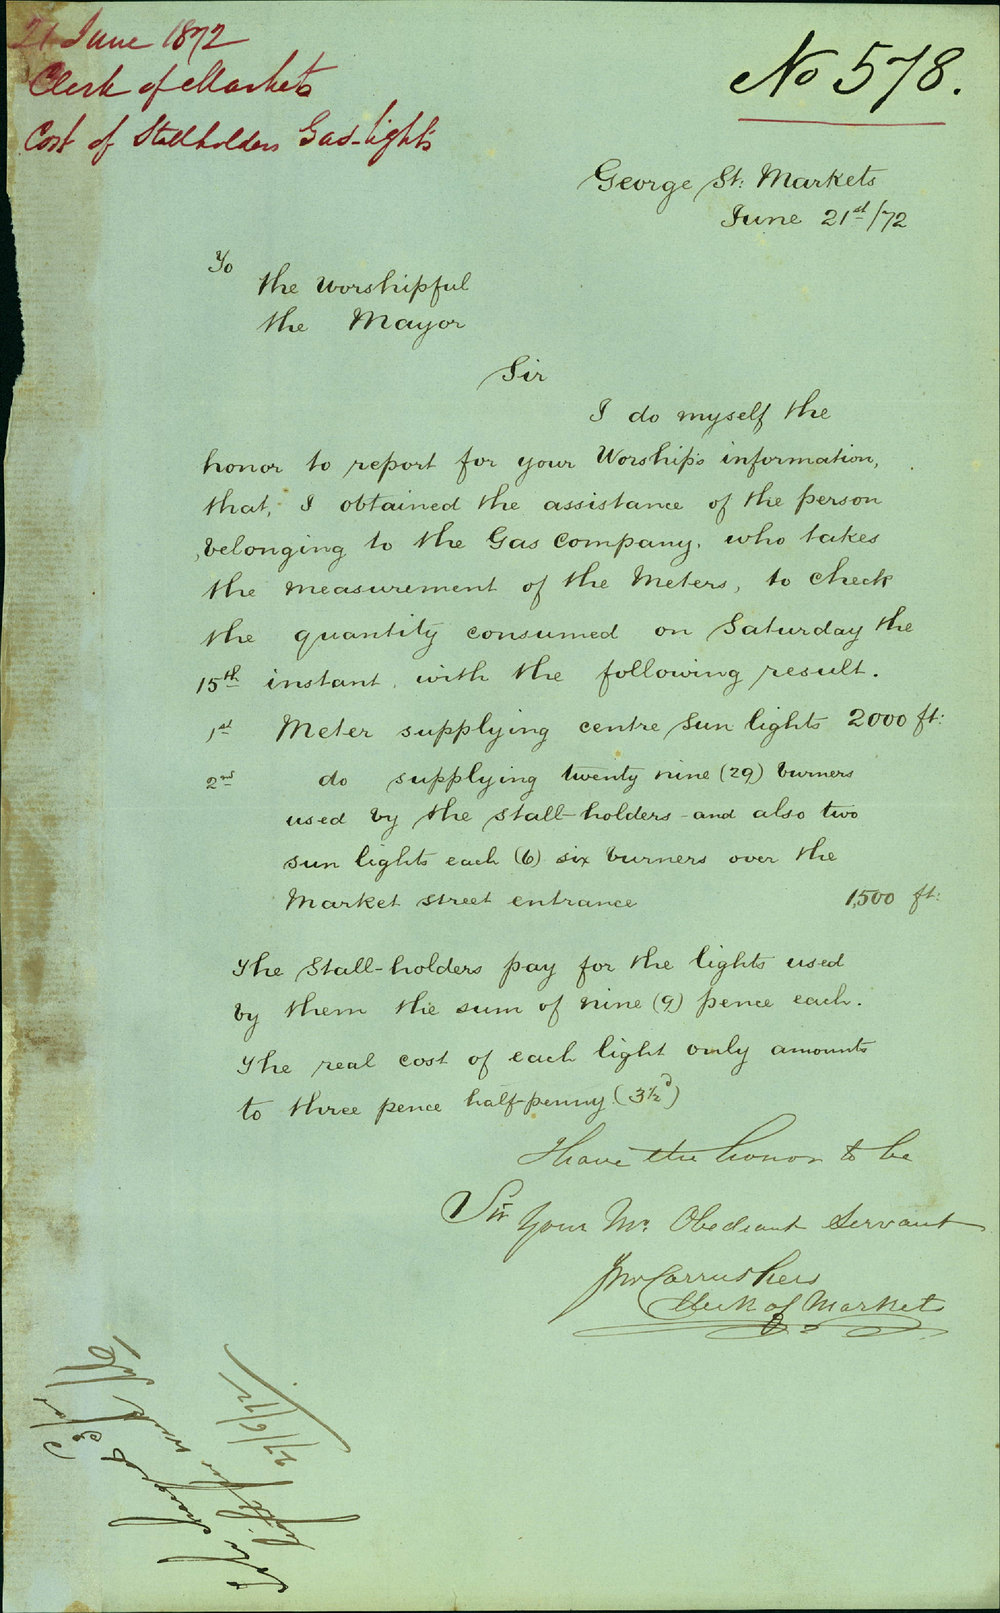 21 June 1872
Clerk of Markets
Cost of Stallholders Gas-lights
No 578.
George St: Markets
June 21st/72
To
the Worshipful
the Mayor
Sir
I do myself the
honor to report for your Worship's information,
that, I obtained the assistance of the person
belonging to the Gas Company, who takes
the measurement of the Meters, to check
the quantity consumed on Saturday the
15th instant, with the following result.
1st Meter supplying centre sun lights 2000 ft:
2nd do supplying twenty nine (29) burners
used by the stall-holders - and also two
sun lights each (6) six burners over the
Market street entrance 1,500 ft:
The Stall-holders pay for the lights used
by them the sum of nine (9) pence each.
The real cost of each light only amounts
to three pence half-penny (3½d)
I have the honor to be
Sir Your Mo. Obediant Servant
Jno Carruthers
Clerk of Markets
To be charged
light per week
27/6/72